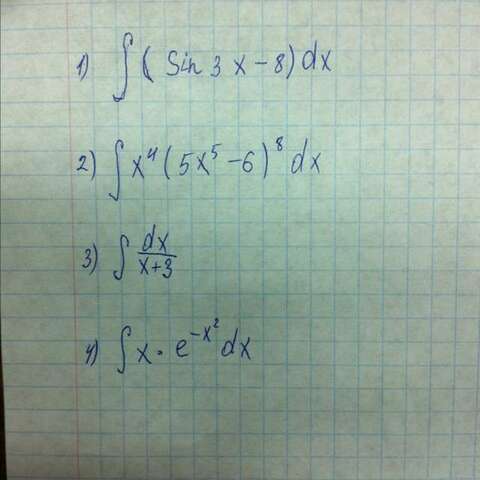 1) ∫( Sin 3x-8)dx
2) ∫x⁴(5x⁵-6)⁸dx
3) ∫ dx/x+3
4) ∫x·e^{-x²}dx